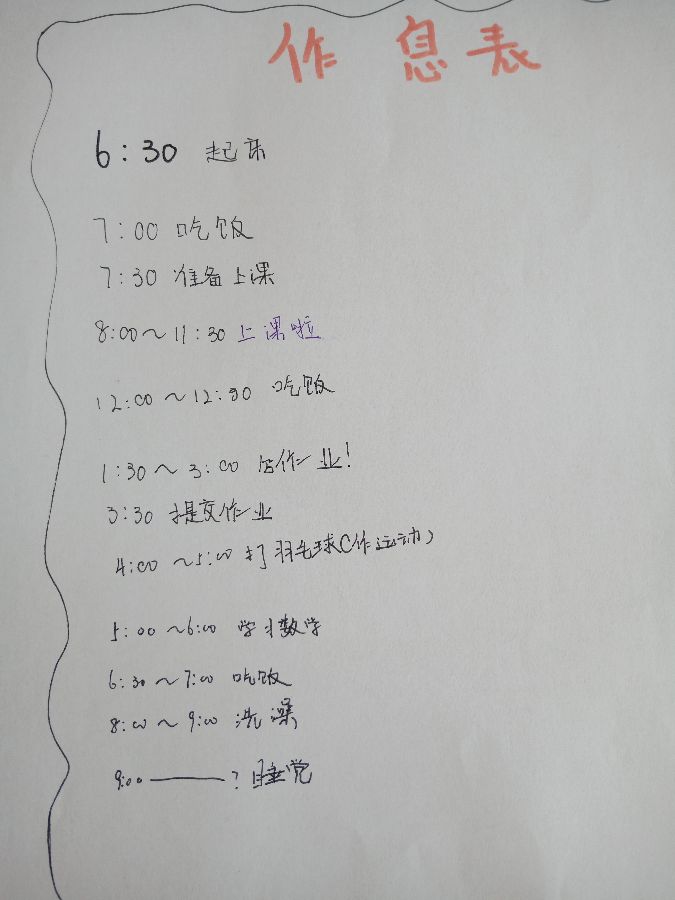 作 息 表
6:30 起床
7:00 吃饭
7:30 准备上课
8:00~11:30 上课啦
12:00~12:30 吃饭
1:30~3:00 写作业!
3:30 提交作业
4:00~5:00 打羽毛球(作运动)
5:00~6:00 学习数学
6:30~7:00 吃饭
8:00~9:00 洗澡
9:00——? 睡觉